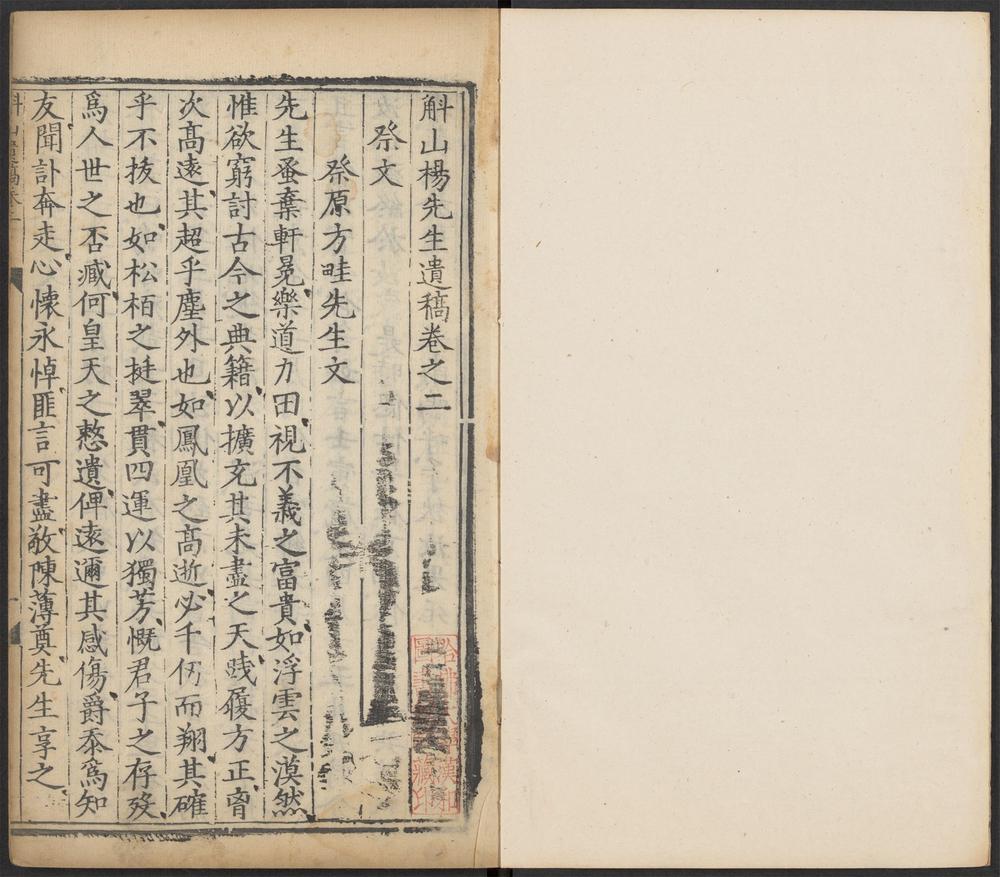 斛山楊先生遺稿卷之二
祭文
祭原方畦先生文
先生蚤棄軒冕樂道力田視不義之富貴如浮雲之漠然
惟欲窮討古今之典籍以擴充其未盡之天踐履方正胷
次高遠其超乎塵外也如鳳凰之高逝必千仞而翔其確
乎不拔也如松栢之挺翠貫四運以獨芳慨君子之存歿
爲人世之否臧何皇天之憗遺俾遠邇其感傷爵忝爲知
友聞訃奔走心懷永悼匪言可盡敬陳薄奠先生享之